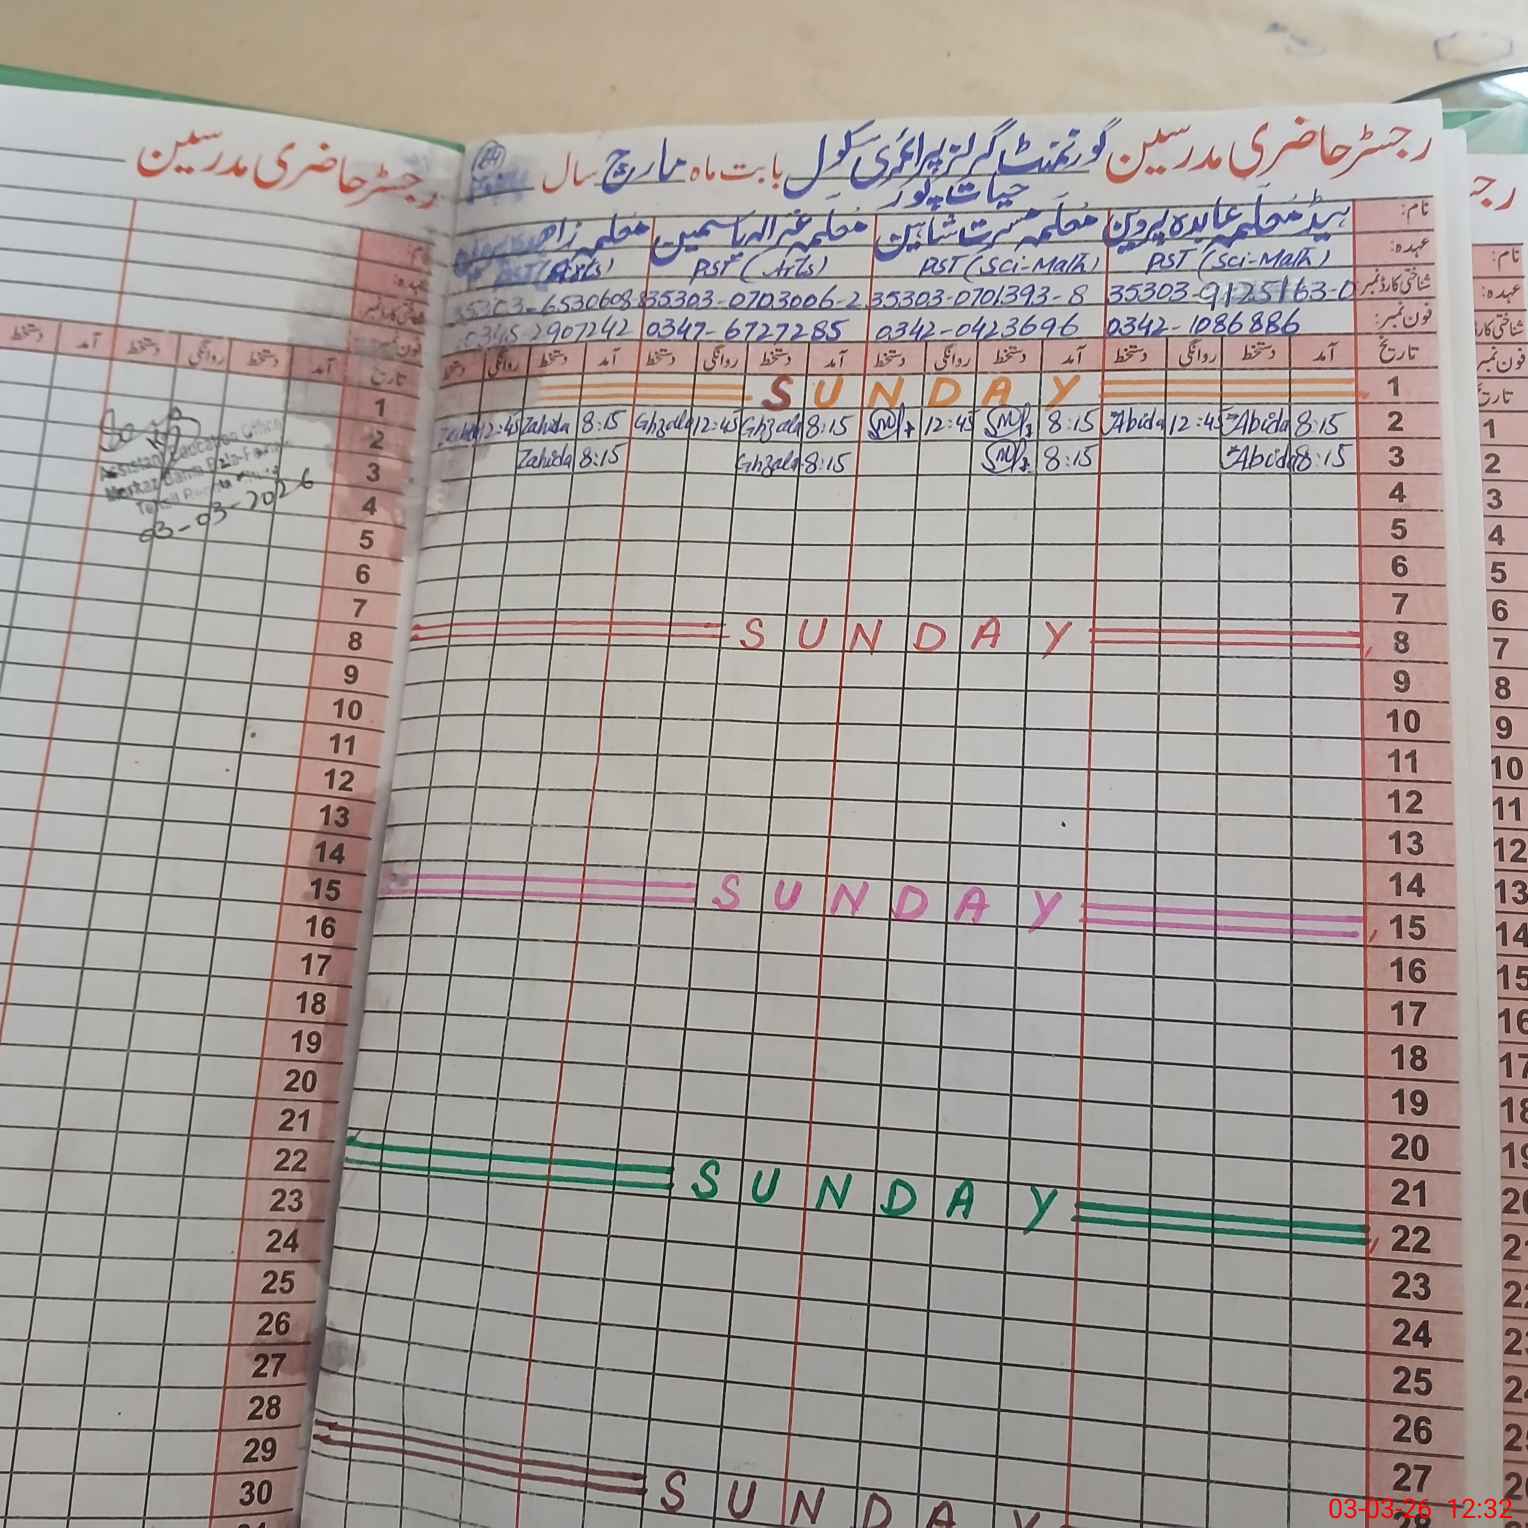 رجسٹر حاضری مدرسین گورنمنٹ گرلز پرائمری سکول بابت ماہ مارچ سال
حیات پور
نام: ہیڈ معلمہ عابدہ پروین معلمہ مسرت شاہین معلمہ غزالہ یاسمین معلمہ زاہدہ
عہدہ: PST (Sci-Math) PST (Sci-Math) PST (Arts) PST (Arts)
شناختی کارڈ نمبر: 35303-9125163-0 35303-0701393-8 35303-0703006-2 35303-6530608-8
فون نمبر: 0342-1086886 0342-0423696 0347-6727285 0345-2907242
تاریخ آمد دستخط روانگی دستخط آمد دستخط روانگی دستخط آمد دستخط روانگی دستخط آمد دستخط روانگی دستخط
1 SUNDAY
2 8:15 Abida 12:45 Abida 8:15 12:45 8:15 Ghzala 12:45 Ghzala 8:15 Zahida 12:45 Zahida
3 8:15 Abida 8:15 8:15 Ghzala 8:15 Zahida
4
5
6
7
8 SUNDAY
9
10
11
12
13
14
15 SUNDAY
16
17
18
19
20
21
22 SUNDAY
23
24
25
26
27
28
SUNDAY
رجسٹر حاضری مدرسین
نام:
عہدہ:
شناختی کارڈ نمبر
فون نمبر:
تاریخ آمد دستخط روانگی دستخط آمد دستخط
1
2
3
4
5
6
7
8
9
10
11
12
13
14
15
16
17
18
19
20
21
22
23
24
25
26
27
28
29
30
Assistant Education Officer
Markaz
03-03-2026
نام:
عہدہ:
شناختی کارڈ
فون نمبر
تاریخ
1
2
3
4
5
6
7
8
9
10
11
12
13
14
15
16
17
18
19
20
03-03-26 12:32